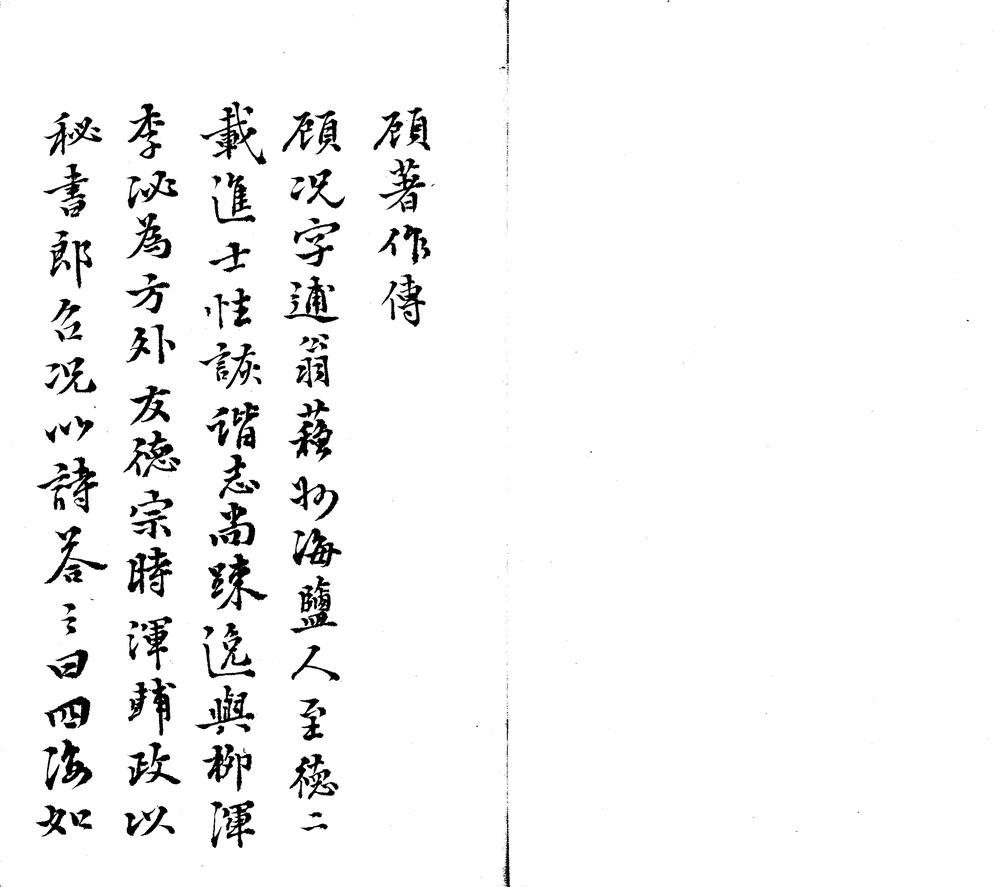 顧著作傳
顧况字逋翁蘓州海鹽人至德二
載進士性詼谐志尚踈逸與柳渾
李泌為方外友德宗時渾輔政以
秘書郎召况以詩荅之曰四海如